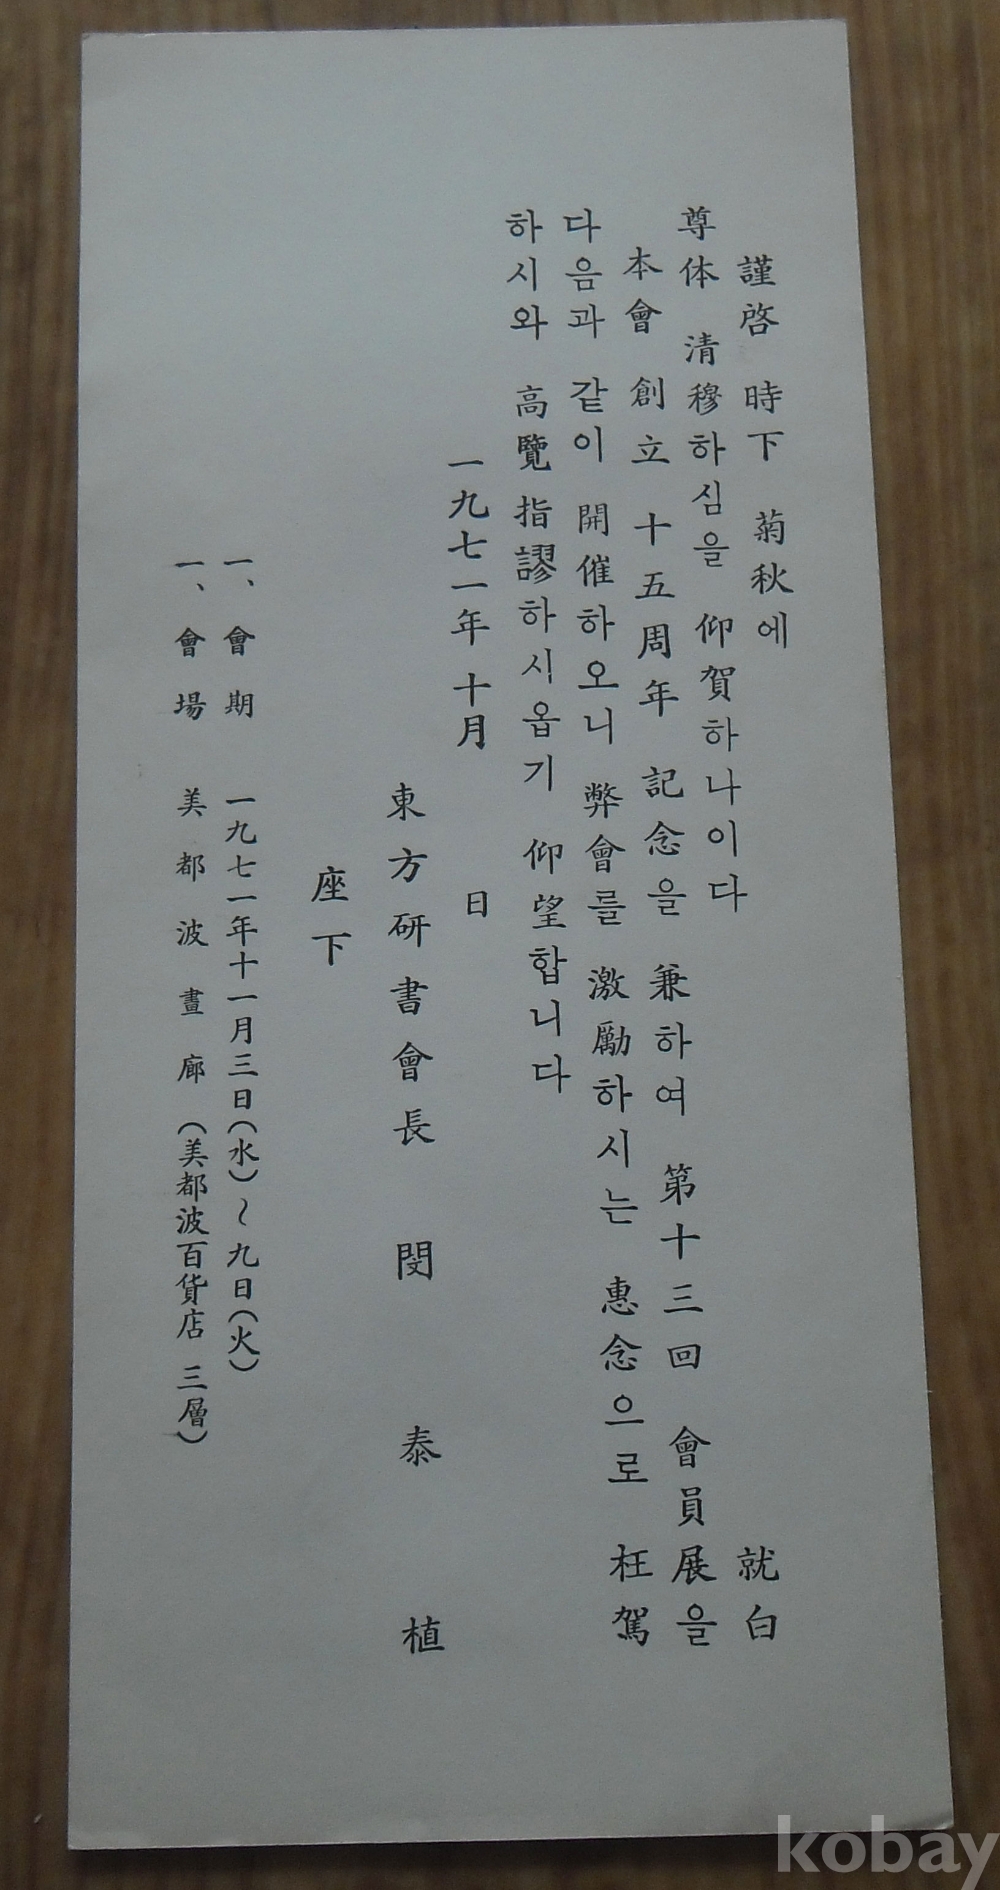 謹啓 時下 菊秋에
尊体 清穆하심을 仰賀하나이다 就白
本會 創立 十五周年 記念을 兼하여 第十三回 會員展을
다음과 같이 開催하오니 弊會를 激勵하시는 惠念으로 枉駕
하시와 高覽指謬하시옵기 仰望합니다
一九七一年 十月 日
東方研書會長 閔泰植
座下
一、會期 一九七一年十一月三日(水)~九日(火)
一、會場 美都波畫廊(美都波百貨店 三層)
kobay